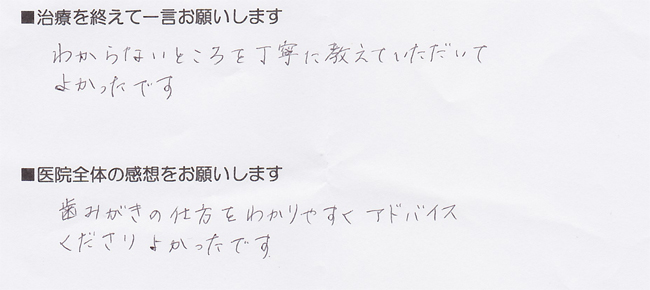 ■治療を終えて一言お願いします
わからないところを丁寧に教えていただいて
よかったです
■医院全体の感想をお願いします
歯みがきの仕方をわかりやすくアドバイス
くださりよかったです